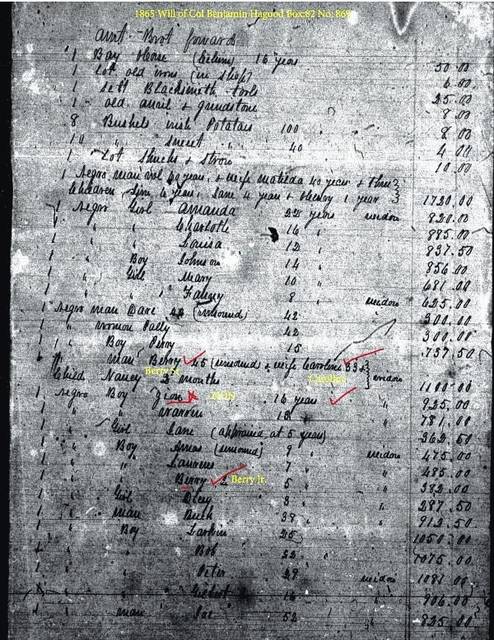 1865 Will of Col Benjamin Hagood Box 82 No. 869
amt. Brot forward
1 Bay Horse 16 years 50.00
1 Lot old irons (in shop) 6.00
1 Sett Blacksmith tools 25.00
1 old anvil & grindstone 8.00
8 Bushels irish Potatoes 100 8.00
10 " sweet " 40 4.00
1 Lot Shucks & Straw 10.00
1 Negro man 40 years & wife Matilda 40 years & three
Children 4 years, Jane 4 years & Henry 1 year 1720.00
1 Negro Girl Amanda 22 years 820.00
1 " " Charlotte 14 " 885.00
1 " " Louisa 12 " 837.50
1 " Boy Johnson 14 " 856.00
1 " Girl Mary 10 " 681.00
1 " " Fanny 8 " 625.00
1 Negro man Dave (unsound) 42 300.00
1 " woman 42 300.00
1 " Boy Perry 15 737.50
" man Berry 45 (unsound & wife Caroline 33 &
Berry Sr. Caroline
Child Nancy 2 months 1100.00
1 Negro Boy Zion 16 years 925.00
ZION
1 " " Warren 18 781.00
1 " Girl Jane (appraised at 5 years) 362.50
1 " Boy (unsound) 9 " 475.00
1 " " Laurens 7 " 485.00
1 " " Berry 5 " 382.00
Berry Jr.
1 " Girl 3 " 287.50
1 " man Buck 38 " 912.50
1 " Boy 25 1050.00
1 " " Bob 22 " 1075.00
1 " " Peter 29 1081.00
1 " " 16 " 906.00
1 " man Joe 52 825.00